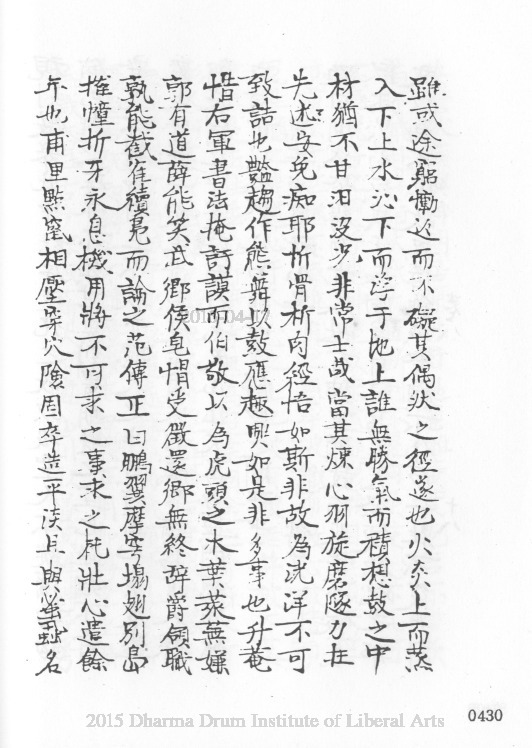 雖或途窮慟返而不礙其偶狀之徑遂也火炎上而蒸
入下上水沁下而浮于地上誰無勝氣而積想鼓之中
材猶不甘汨沒況非常士哉當其煉心羽旋磨隊力在
先述安免痴耶忻骨析肉徑悟如斯非故為洸洋不可
致詰也豔趨作態舞以鼓應趣興如是非多事也升菴
惜右軍書法掩訏謨而伯敬以為虎頭之木葉蓀蕪嫌
郭有道薛能笑武鄉侯皂帽受徵還鄉無終辭爵領職
孰能截隹續鳧而論之范傳正曰鵬翼摩穹塌翅別島
摧幢折牙永息機用將不可求之事求之秏壯心遣餘
年也甫里點竄相壓穿穴險固卒造平淡且與蜜蝨名
2015 Dharma Drum Institute of Liberal Arts
0430